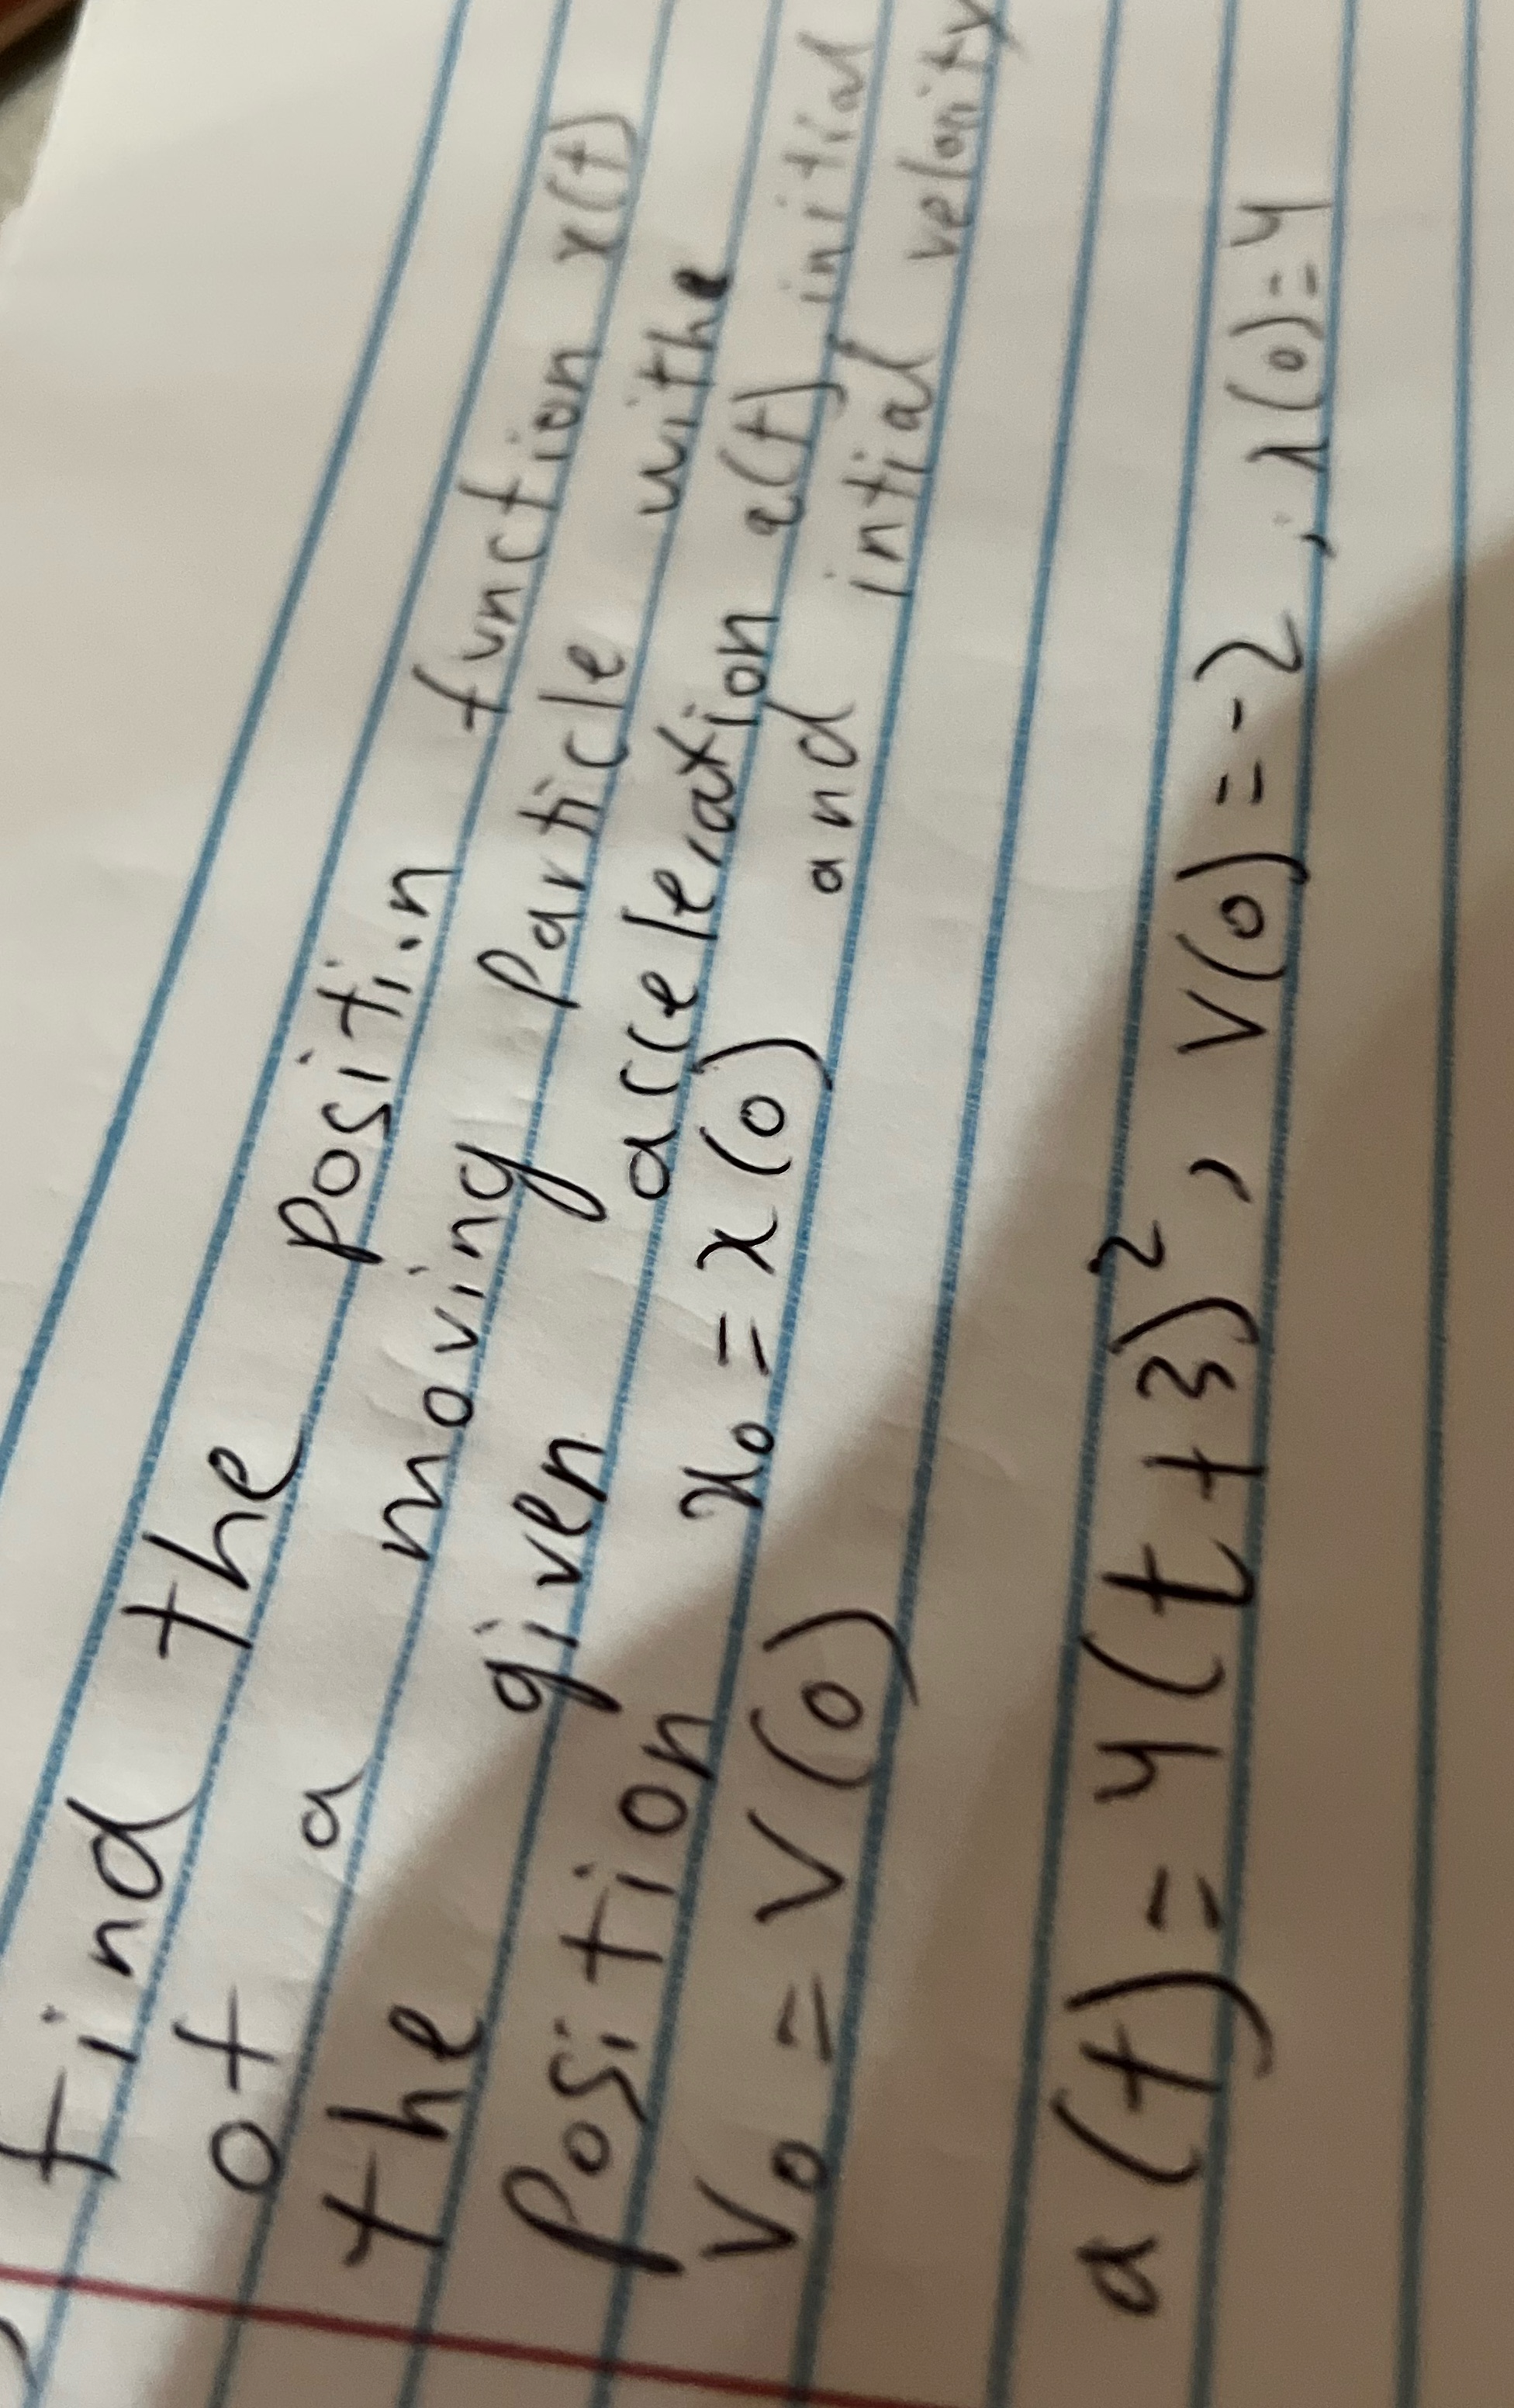 find the position function x(t)
of a moving particle withe
the given acceleration a(t) initial
position x₀ = x(0) and intial velocity
v₀ = v(0)
a(t) = 4(t+3)², v(0) = -2, x(0) = 4